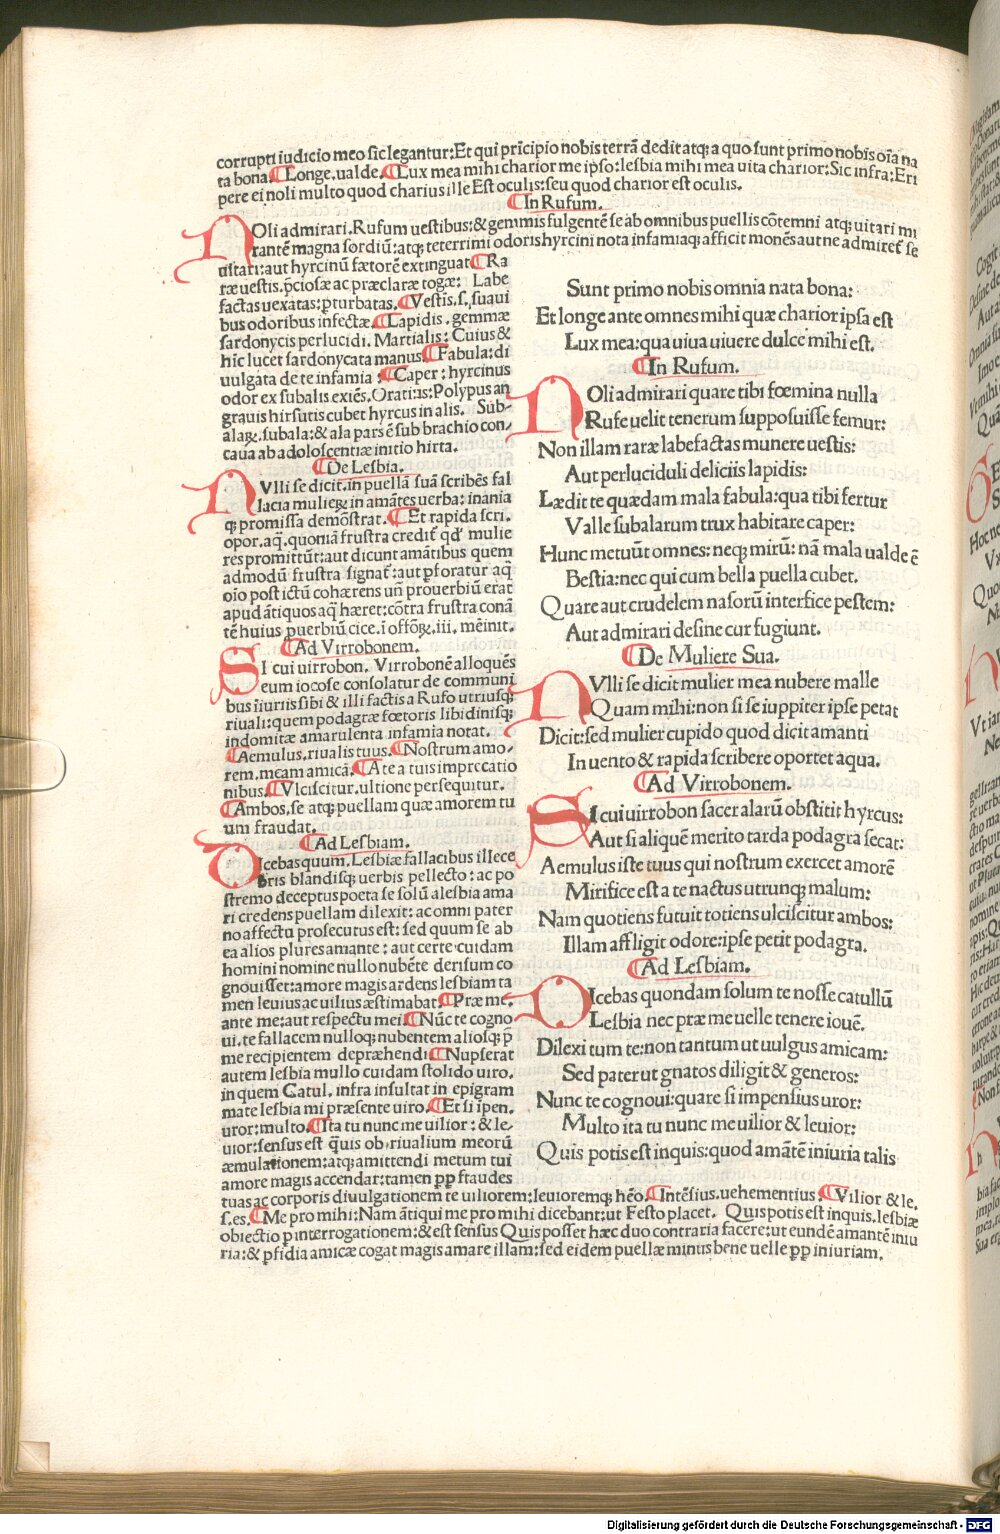 corrupti iudicio meo sic legantur: Et qui prīcipio nobis terrā dedit atq; a quo sunt primo nobis oīa na
ta bona. Longe. ualde. Lux mea mihi charior me ipso: lesbia mihi mea uita charior: Sic infra: Eri
pere ei noli multo quod charius ille Est oculis: seu quod charior est oculis.
In Rufum.
NOli admirari. Rufum uestibus: & gemmis fulgentē se ab omnibus puellis cōtemni atq; uitari mi
rantē magna sordiū: atq; teterrimi odoris hyrcini nota infamiaq; afficit monēs aut ne admiret se
uitari: aut hyrcinū fætorē extinguat Ra
ræ uestis. p̄ciosæ ac præclaræ togæ: Labe
factas uexatas: pturbatas. Vestis. s. suaui
bus odoribus infectæ. Lapidis. gemmæ
sardonycis perlucidi. Martialis: Cuius &
hīc lucet sardonycata manus. Fabula: di
uulgata de te infamia: Caper: hyrcinus
odor ex subalis exiēs. Orati:us: Polypus an
grauis hirsutis cubet hyrcus in alis. Sub-
alaꝝ. subala: & ala pars ē sub brachio con-
caua ab adoloscentiæ initio hirta.
De Lesbia.
NVlli se dicit. in puellā suā scribēs fal
lacia mulieꝝ in amātes uerba: inania
q; promissa demōstrat. Et rapida scri.
opor. aq̄. quoniā frustra credit qđ mulie
res promittūt: aut dicunt amātibus quem
admodū frustra signat: aut pforatur aq̄
oīo post ictū cohærens un̄ prouerbiū erat
apud ātiquos aq̄ hæret: cōtra frustra conā
tē huius puerbiū cice. ī offōꝝ. iii. mēinit.
Ad Virrobonem.
SI cui uirrobon. Virrobonē alloquēs
eum iocose consolatur de communi
bus īiuriis sibi & illi factis a Rufo utriusq;
riuali: quem podagræ fœtoris libidinisq;
indomitæ amarulenta infamia notat.
Aemulus. riualis tuus. Nostrum amo-
rem. meam amicā. A te a tuis imprecatio
nibus. Vlciscitur. ultione persequitur.
Ambos. se atq; puellam quæ amorem tu
um fraudat.
Ad Lesbiam.
DIcebas quum. Lesbiæ fallacibus illece
bris blandisq; uerbis pellecto: ac po
stremo deceptus poeta se solū a lesbia ama
ri credens puellam dilexit: ac omni pater
no affectu prosecutus est: sed quum se ab
ea alios plures amante: aut certe cuidam
homini nomine nullo nubēte derisum co
gnouisset: amore magis ardens lesbiam ta
men leuius ac uilius æstimabat. Præ me.
ante me: aut respectu mei. Nūc te cogno
ui. te fallacem nulloq; nubentem aliosq; p̄
me recipientem depræhendi Nupserat
autem lesbia mullo cuidam stolido uiro.
in quem Catul. infra insultat in epigram
mate lesbia mi præsente uiro. Et si ipen.
uror: multo. Ita tu nunc me uilior: & le-
uior: sensus est q̄uis ob riualium meorū
æmulationem: atq; amittendi metum tui
amore magis accendar: tamen ꝓp fraudes
tuas ac corporis diuulgationem te uiliorem: leuioremq; hēo. Intēsius. uehementius. Vilior & le.
s. es. Me pro mihi: Nam ātiqui me pro mihi dicebant: ut Festo placet. Quis potis est inquis. lesbiæ
obiectio p interrogationem: & est sensus Quis posset hæc duo contraria facere: ut eundē amantē iniu
ria: & pfidia amicæ cogat magis amare illam: sed eidem puellæ minus bene uelle ꝓp iniuriam.
Sunt primo nobis omnia nata bona:
Et longe ante omnes mihi quæ charior ipsa est
Lux mea: qua uiua uiuere dulce mihi est.
In Rufum.
NOli admirari quare tibi fœmina nulla
Rufe uelit tenerum supposuisse femur:
Non illam raræ labefactas munere uestis:
Aut perluciduli deliciis lapidis:
Lædit te quædam mala fabula: qua tibi fertur
Valle subalarum trux habitare caper:
Hunc metuūt omnes: neq; mirū: nā mala ualde ē
Bestia: nec qui cum bella puella cubet.
Quare aut crudelem nasorū interfice pestem:
Aut admirari desine cur fugiunt.
De Muliere Sua.
NVlli se dicit mulier mea nubere malle
Quam mihi: non si se iuppiter ipse petat
Dicit: sed mulier cupido quod dicit amanti
In uento & rapida scribere oportet aqua.
Ad Virrobonem.
SI cui uirrobon sacer alarū obstitit hyrcus:
Aut si aliquē merito tarda podagra secat:
Aemulus iste tuus qui nostrum exercet amorē
Mirifice est a te nactus utrunq; malum:
Nam quotiens futuit totiens ulciscitur ambos:
Illam affligit odore: ipse petit podagra.
Ad Lesbiam.
DIcebas quondam solum te nosse catullū
Lesbia nec præ me uelle tenere iouē.
Dilexi tum te: non tantum ut uulgus amicam:
Sed pater ut gnatos diligit & generos:
Nunc te cognoui: quare si impensius uror:
Multo ita tu nunc me uilior & leuior:
Quis potis est inquis: quod amātē iniuria talis
Digitalisierung gefördert durch die Deutsche Forschungsgemeinschaft - DFG